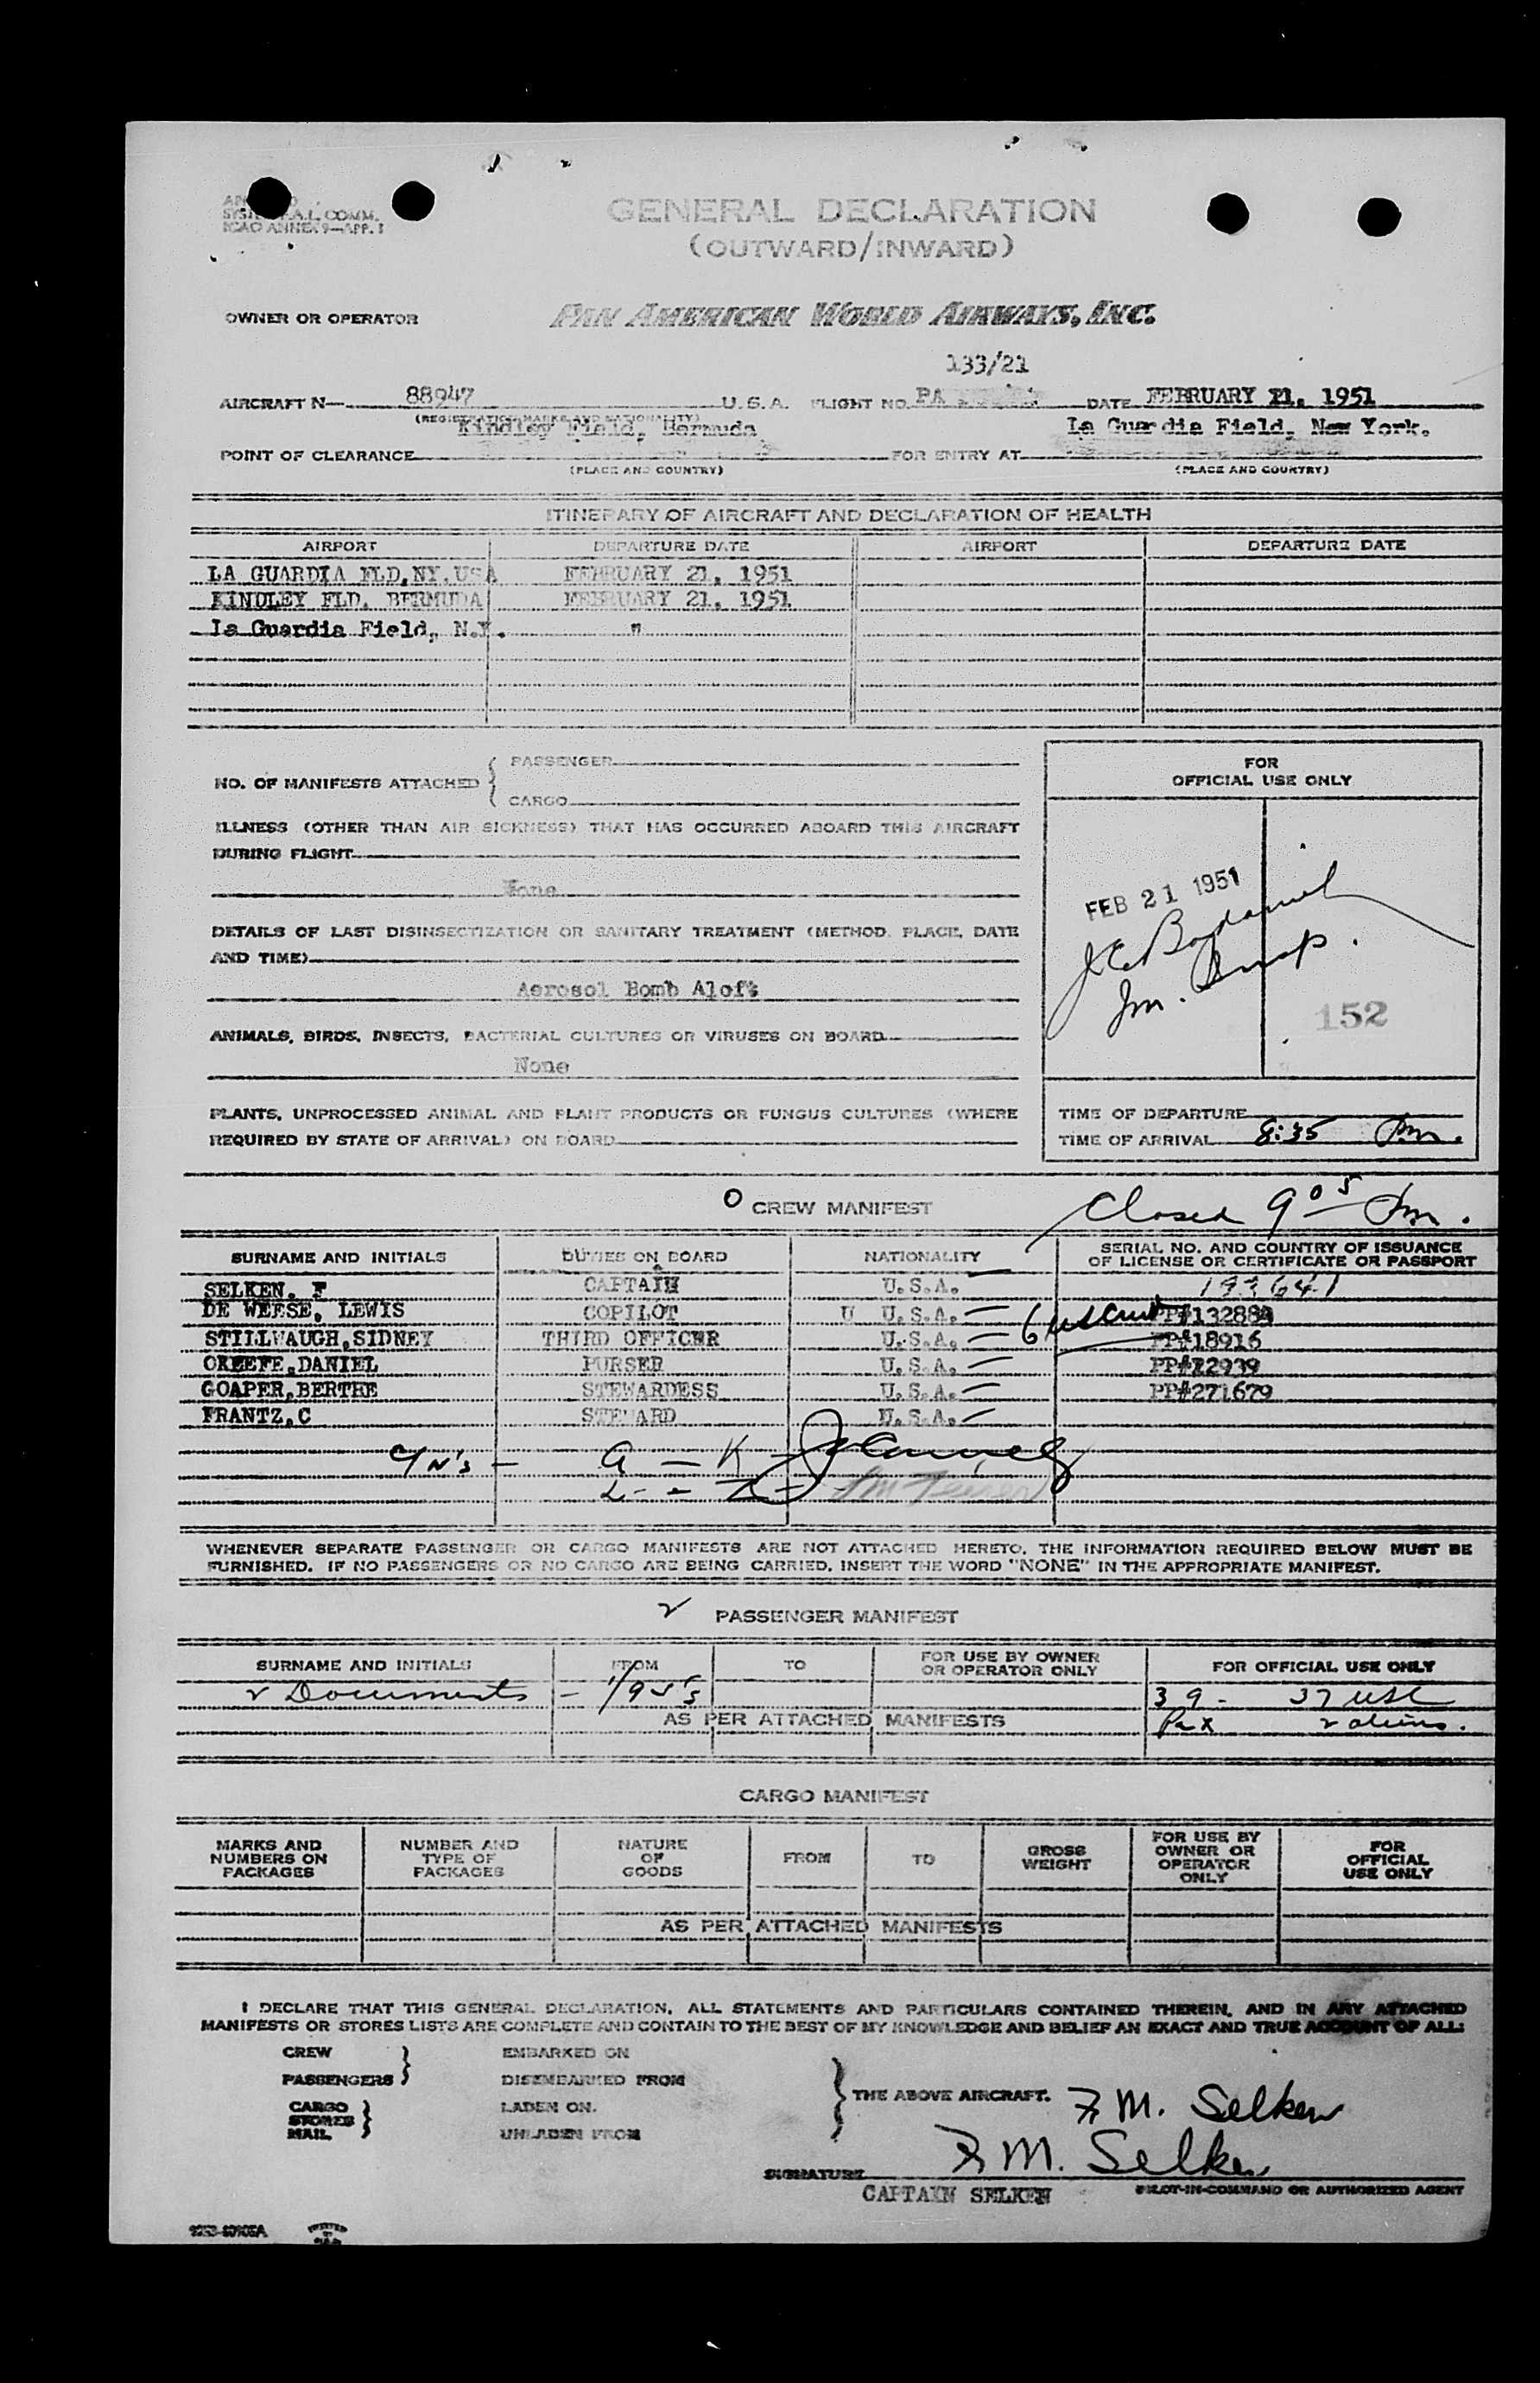 COMM.
ICAO ANNEX 9—APP. 1
GENERAL DECLARATION
(OUTWARD/INWARD)
OWNER OR OPERATOR PAN AMERICAN WORLD AIRWAYS, INC.
133/21
AIRCRAFT N— 88947 U. S. A. FLIGHT NO. PA DATE FEBRUARY 21, 1951
(REGISTRATION MARKS AND NATIONALITY)
Kindley Field, Bermuda La Guardia Field, New York.
POINT OF CLEARANCE FOR ENTRY AT
(PLACE AND COUNTRY) (PLACE AND COUNTRY)
ITINERARY OF AIRCRAFT AND DECLARATION OF HEALTH
AIRPORT DEPARTURE DATE AIRPORT DEPARTURE DATE
LA GUARDIA FLD,NY,USA FEBRUARY 21, 1951
KINDLEY FLD. BERMUDA FEBRUARY 21, 1951
La Guardia Field, N.Y. "
NO. OF MANIFESTS ATTACHED { PASSENGER
CARGO
FOR
OFFICIAL USE ONLY
ILLNESS (OTHER THAN AIR SICKNESS) THAT HAS OCCURRED ABOARD THIS AIRCRAFT
DURING FLIGHT
None
FEB 21 1951
DETAILS OF LAST DISINSECTIZATION OR SANITARY TREATMENT (METHOD, PLACE, DATE
AND TIME)
Aerosol Bomb Aloft
152
ANIMALS, BIRDS, INSECTS, BACTERIAL CULTURES OR VIRUSES ON BOARD
None
PLANTS, UNPROCESSED ANIMAL AND PLANT PRODUCTS OR FUNGUS CULTURES (WHERE
REQUIRED BY STATE OF ARRIVAL) ON BOARD
TIME OF DEPARTURE
TIME OF ARRIVAL 8:35 Pm.
CREW MANIFEST
Closed 9 05 Pm.
SURNAME AND INITIALS DUTIES ON BOARD NATIONALITY SERIAL NO. AND COUNTRY OF ISSUANCE
OF LICENSE OR CERTIFICATE OR PASSPORT
SELKEN, F CAPTAIN U.S.A. 193641
DE WEESE, LEWIS COPILOT U U.S.A. PP#132884
STILLWAUGH,SIDNEY THIRD OFFICER U.S.A. PP#18916
OKEEFE,DANIEL PURSER U.S.A. PP#22939
GOAPER,BERTHE STEWARDESS U.S.A. PP#271679
FRANTZ,C STEWARD U.S.A.
A — K
L — Z
WHENEVER SEPARATE PASSENGER OR CARGO MANIFESTS ARE NOT ATTACHED HERETO, THE INFORMATION REQUIRED BELOW MUST BE
FURNISHED. IF NO PASSENGERS OR NO CARGO ARE BEING CARRIED, INSERT THE WORD "NONE" IN THE APPROPRIATE MANIFEST.
PASSENGER MANIFEST
SURNAME AND INITIALS FROM TO FOR USE BY OWNER
OR OPERATOR ONLY FOR OFFICIAL USE ONLY
2 Documents — 39 - 37 USC
AS PER ATTACHED MANIFESTS Pax 2 aliens.
CARGO MANIFEST
MARKS AND
NUMBERS ON
PACKAGES
NUMBER AND
TYPE OF
PACKAGES
NATURE
OF
GOODS
FROM
TO
GROSS
WEIGHT
FOR USE BY
OWNER OR
OPERATOR
ONLY
FOR
OFFICIAL
USE ONLY
AS PER ATTACHED MANIFESTS
I DECLARE THAT THIS GENERAL DECLARATION, ALL STATEMENTS AND PARTICULARS CONTAINED THEREIN, AND IN ANY ATTACHED
MANIFESTS OR STORES LISTS ARE COMPLETE AND CONTAIN TO THE BEST OF MY KNOWLEDGE AND BELIEF AN EXACT AND TRUE ACCOUNT OF ALL:
CREW EMBARKED ON
PASSENGERS DISEMBARKED FROM
CARGO LADEN ON.
STORES
MAIL UNLADEN FROM
THE ABOVE AIRCRAFT. F M. Selken
SIGNATURE F M. Selken
CAPTAIN SELKEN PILOT-IN-COMMAND OR AUTHORIZED AGENT